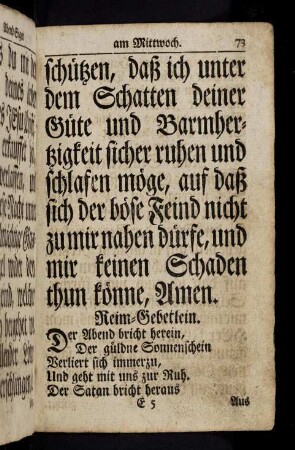 am Mittwoch. 73
schützen, daß ich unter
dem Schatten deiner
Güte und Barmher-
tzigkeit sicher ruhen und
schlafen möge, auf daß
sich der böse Feind nicht
zu mir nahen dürfe, und
mir keinen Schaden
thun könne, Amen.
Reim-Gebetlein.
Der Abend bricht herein,
Der güldne Sonnenschein
Verliert sich immerzu,
Und geht mit uns zur Ruh.
Der Satan bricht heraus
E 5 Aus